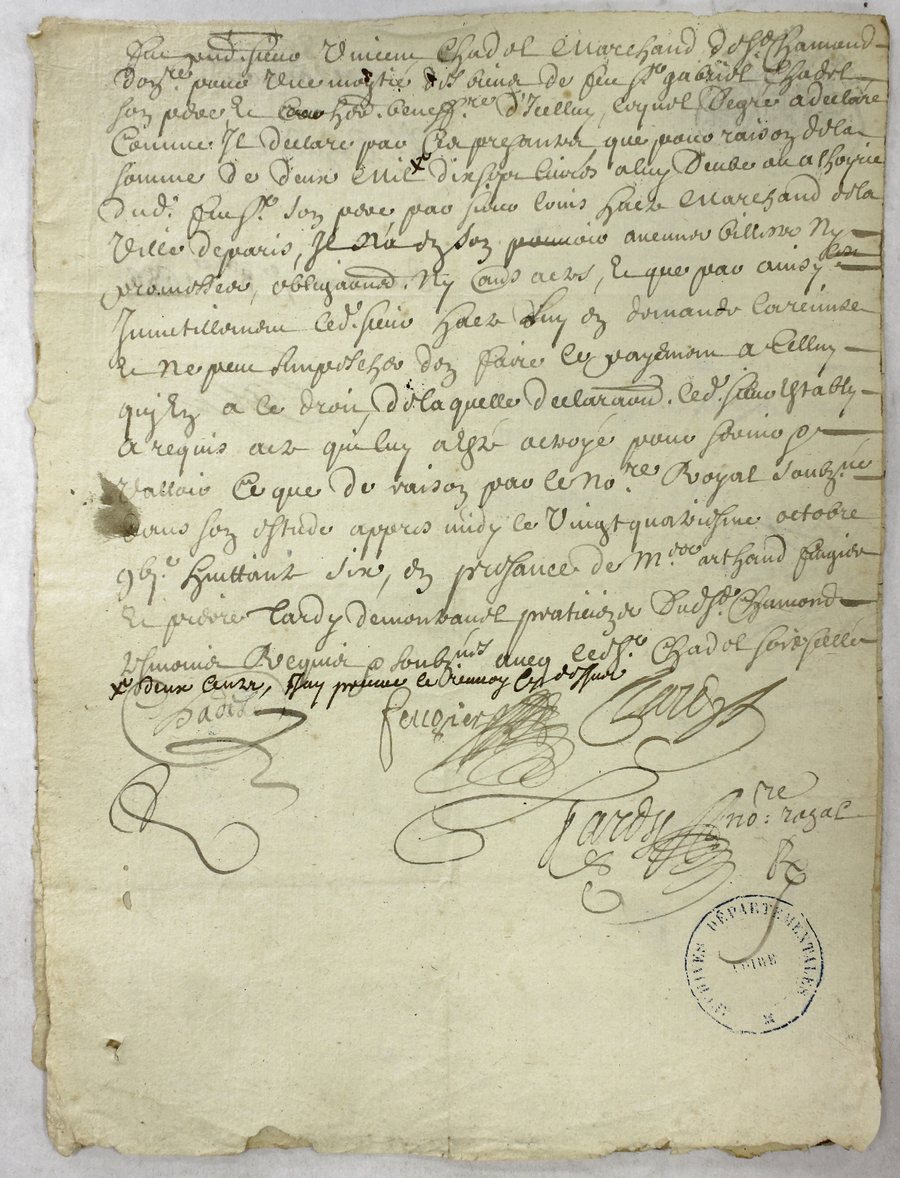 Fut pnt. sieur Vincent Chadel Marchand de St. Chamond
don.re pour une moytié des biens de feu sr. gabriel Chadel
son pere et her. beneff.re d'Icelluy, lequel degré a declaré
Comme Il declare par Ces presantes que pour raison de la
somme De Deux Mil x dix sept livres a luy Deube ou a l'hoyrie
dud. feu sr. son pere par sieur louis Marchand de la
Ville de paris, Il n'a en son pouvoir aucunes billetes Ny
promesses, obligaons. Ny actes, Et que par ainsy
Innutillement led. sieur luy en demande la remise
Et Ne peut Empescher d'en faire le payement a Celluy
quy En a le droit, de laquelle declaraon. led. sieur Estably
a requis acte quy luy a esté octroyé pour servir
Valloir Ce que de raison par le No.re Royal soubz.né
dans son estude appres midy le Vingt quatriesme octobre
huittante six, en presance de M. arthaud feugier
Et pierre Tardy de montravel praticiens dud. St. Chamond
tesmoins Requis soubz.nés avec led. sr. Chadel
x deux Cents,
Chadel
feugier
Tardy
Tardy no:re royal
ARCHIVES DÉPARTEMENTALES
LOIRE